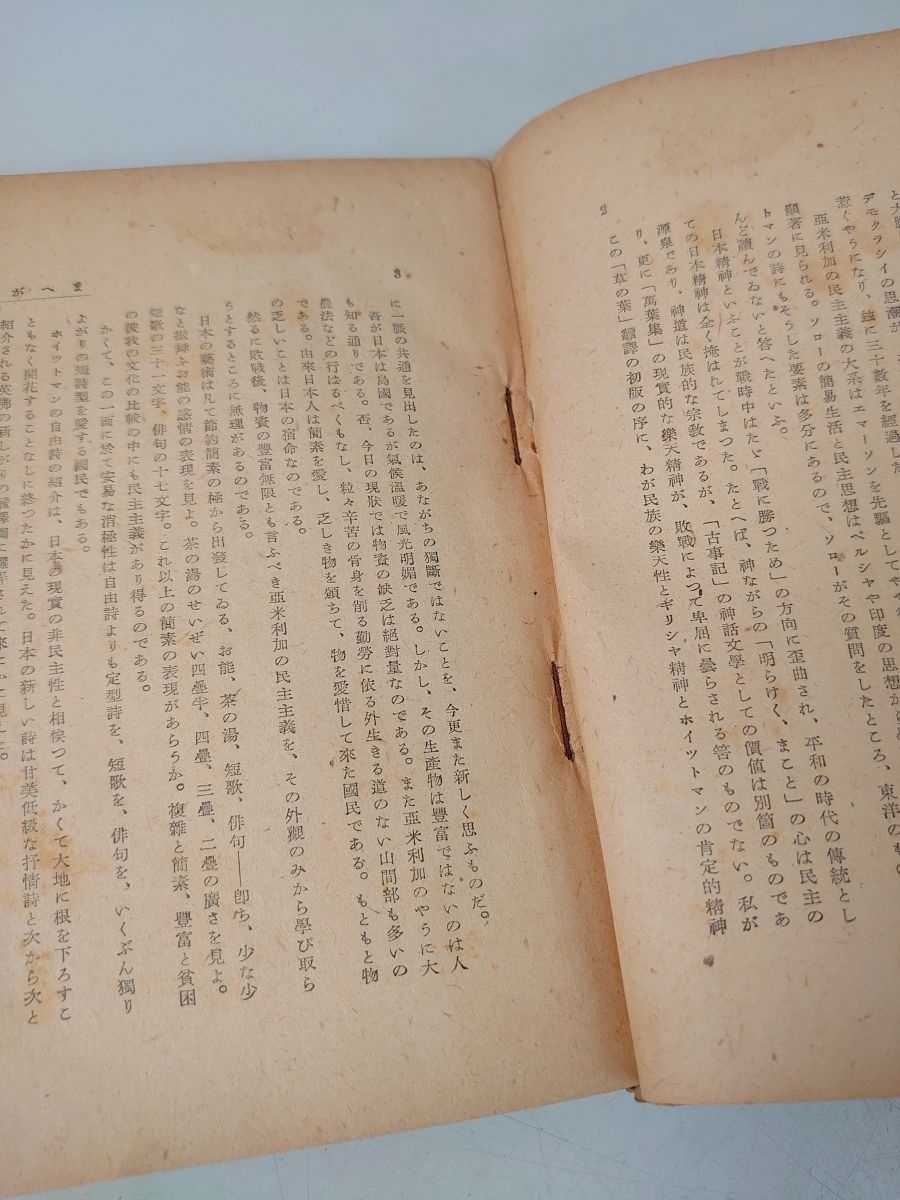 2
デモクラシイの思潮が
惹ぐやうになり、玆に三十數年を經過した
亞米利加の民主主義の大系はエマーソンを先驅としてや
顯著に見られる。ソローの簡易生活と民主思想はペルシヤや印度の思想から
トマンの詩にもさうした要素は多分にあるので、ソローがその質問をしたところ、東洋のも
んど讀んでゐないと答へたといふ。
日本精神といふことが戰時中はたゞ「戰に勝つため」の方向に歪曲され、平和の時代の傳統とし
ての日本精神は全く掩はれてしまつた。たとへば、神ながらの「明らけく、まこと」の心は民主の
源泉であり、神道は民族的な宗敎であるが、「古事記」の神話文學としての價値は別箇のものであ
り、更に「萬葉集」の現實的な樂天精神が、敗戰によつて卑屈に曇らされる筈のものでない。私が
この「草の葉」飜譯の初版の序に、わが民族の樂天性とギリシヤ精神とホイツトマンの肯定的精神
3
まへが
に一脈の共通を見出したのは、あながちの獨斷ではないことを、今更また新しく思ふものだ。
吾が日本は島國であるが氣候溫暖で風光明媚である。しかし、その生產物は豐富ではないのは人
も知る通りである。否、今日の現狀では物資の缺乏は絕對量なのである。また亞米利加のやうに大
農法などの行はるべくもなし、粒々辛苦の骨身を削る勤勞に依る外生きる道のない山間部も多いの
である。由來日本人は簡素を愛し、乏しき物を頒ちて、物を愛惜して來た國民である。もともと物
の乏しいことは日本の宿命なのである。
然るに敗戰後、物資の豐富無限とも言ふべき亞米利加の民主主義を、その外觀のみから學び取ら
うとするところに無理があるのである。
日本の藝術は凡て節約簡素の極から出發してゐる、お能、茶の湯、短歌、俳句――卽ち、少な少
なと振舞ふお能の感情の表現を見よ。茶の湯のせいぜい四疊半、四疊、三疊、二疊の廣さを見よ。
短歌の三十一文字、俳句の十七文字。これ以上の簡素の表現があらうか。複雜と簡素、豐富と貧困
の彼我の文化の比較の中にも民主主義があり得るのである。
かくて、この一面に於て安易な消極性は自由詩よりも定型詩を、短歌を、俳句を、いくぶん獨り
よがりの短詩型を愛する國民でもある。
ホイットマンの自由詩の紹介は、日本の現實の非民主性と相俟つて、かくて大地に根を下ろすこ
ともなく開花することなしに終つたかに見えた。日本の新しい詩は甘美低級な抒情詩と次から次と
紹介される英佛の新しがりの